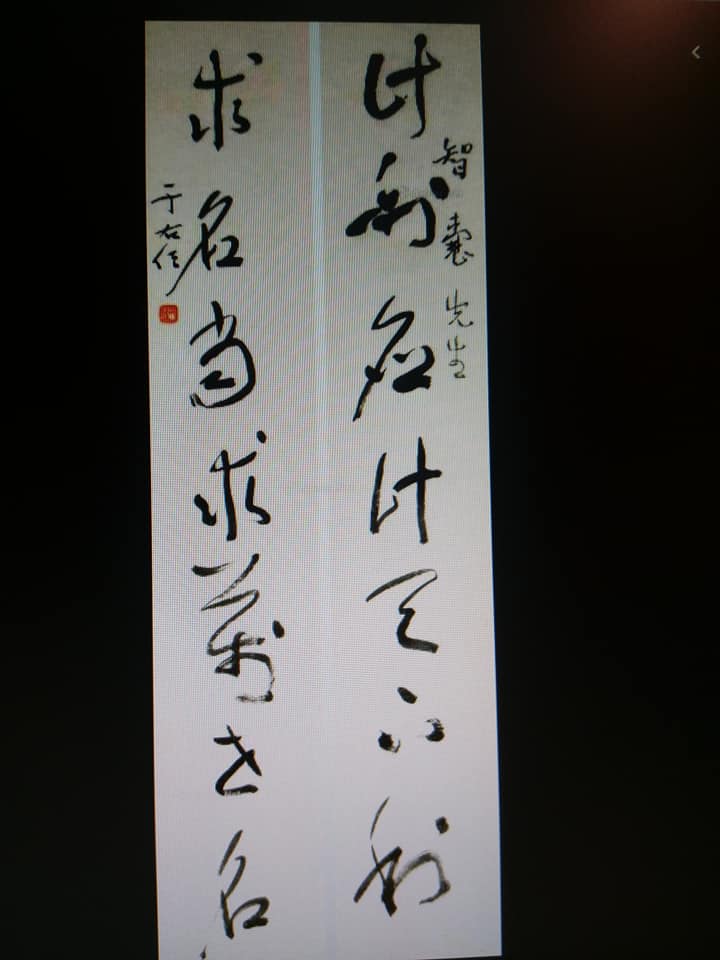 計利應計天下利
智 先生
求名當求萬世名
于右任